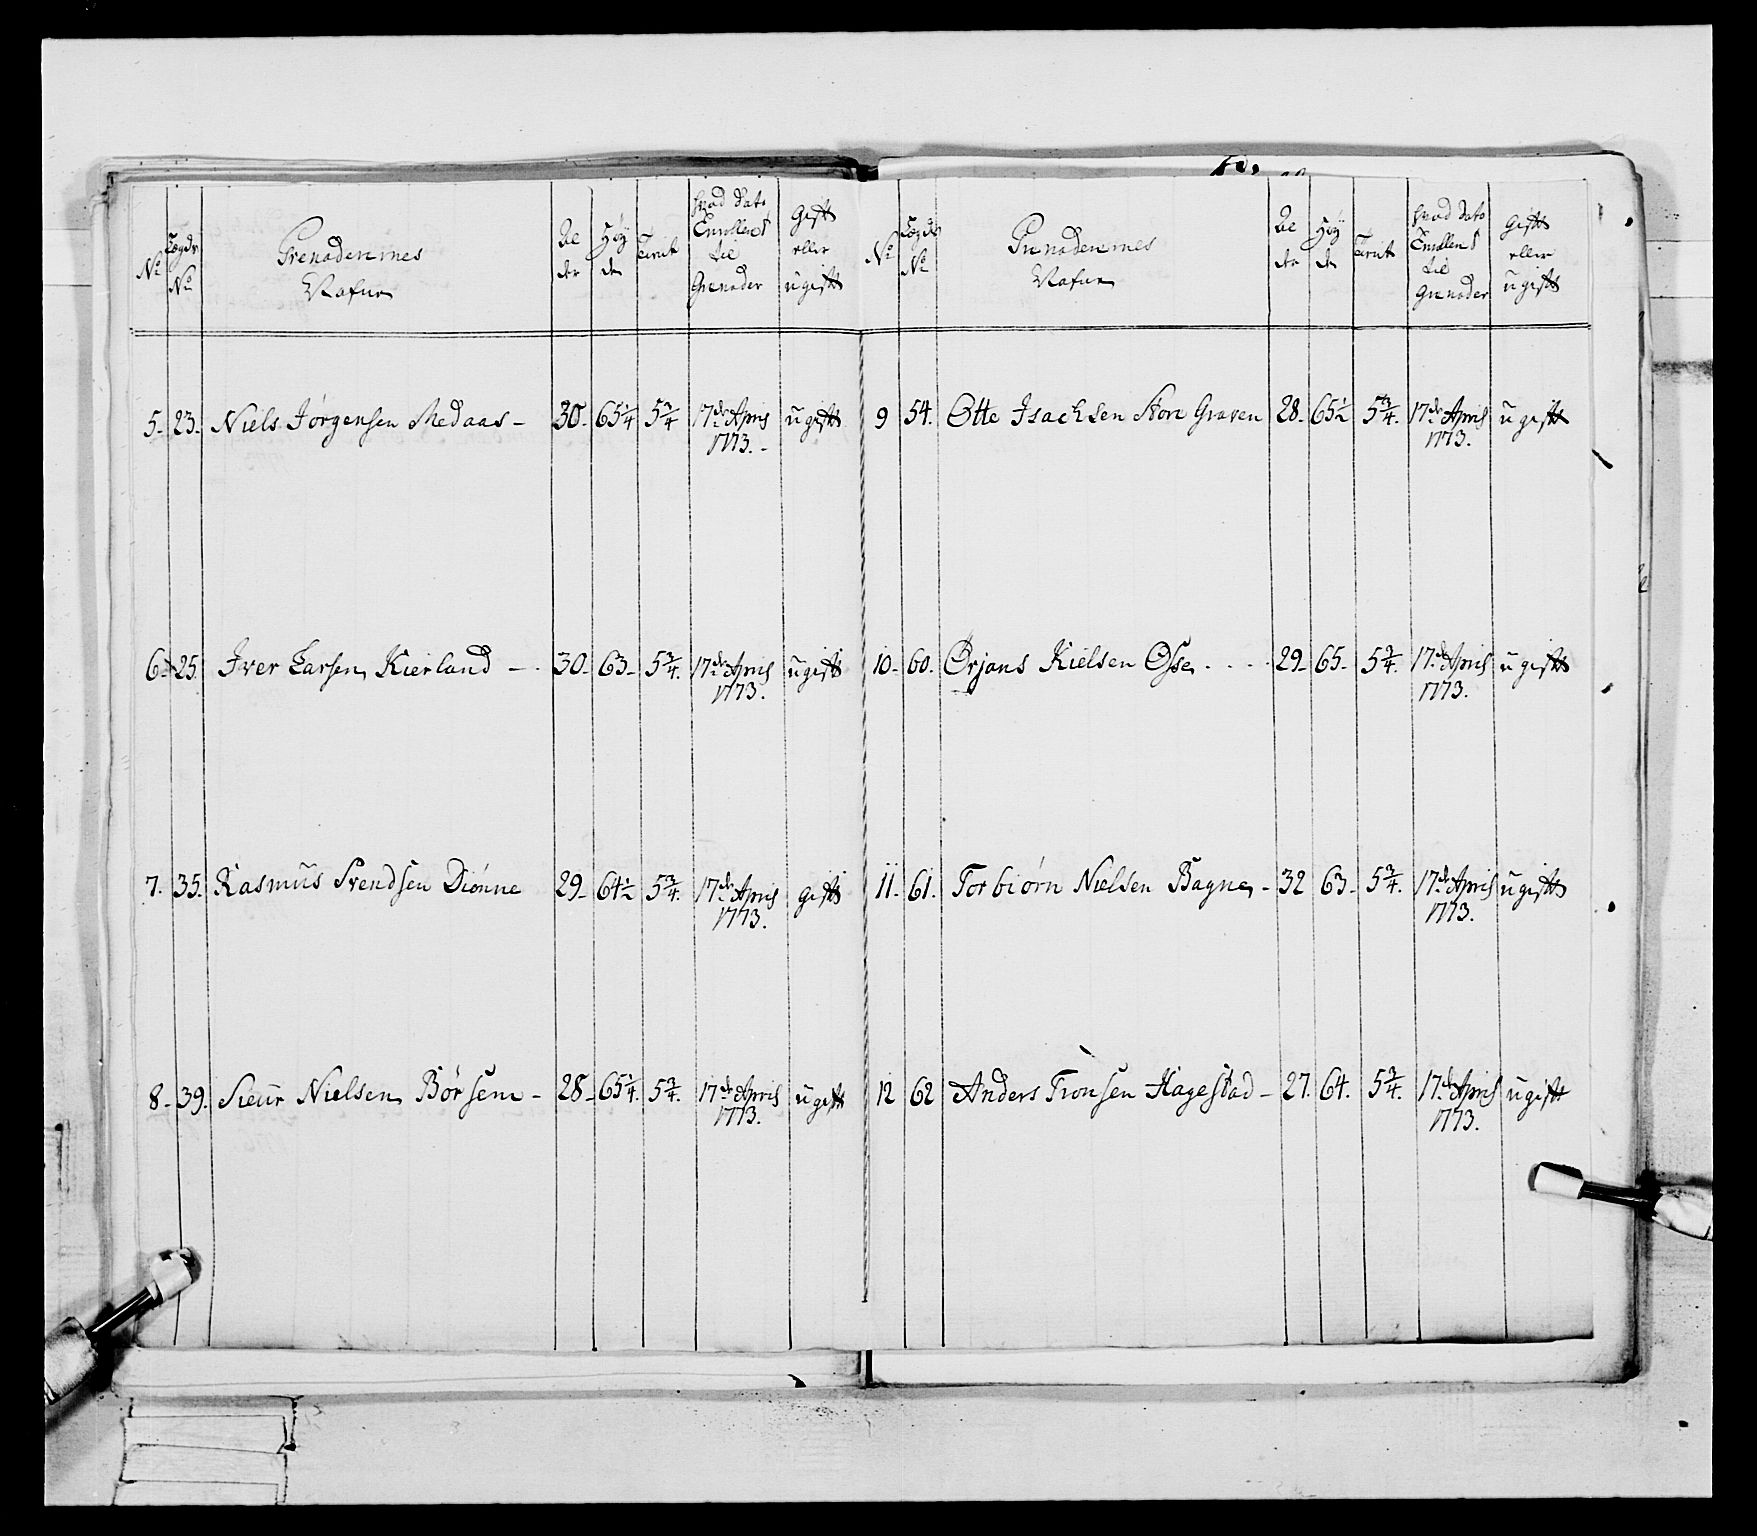 No
Lægds
No
Grenaderernes
Nafne
Al
der
Høy
de
Tient
hvad dato
Enrollert
til
Grenader
gift
eller
ugift
5. 23. Niels Jørgensen Medaas - 30. 65¼ 5¾ 17de April ugift
1773.
6. 25. Iver Larsen Kierland - 30. 63. 5¾. 17de April ugift
1773.
7. 35. Rasmus Svendsen Diønne 29. 64½ 5¾. 17de April gift
1773.
8. 39. Sieur Nielsen Børsem - 28. 65¼. 5¾. 17de April ugift
1773.
No
Lægds
No
Grenaderernes
Nafne
Al
der
Høy
de
Tient
hvad dato
Enrollert
til
Grenader
gift
eller
ugift
9 54. Otte Isachsen Store Graven 28. 65½ 5¾. 17de April ugift
1773.
10. 60. Ørjans Kielsen Osse 29. 65. 5¾. 17de April ugift
1773.
11. 61. Torbiørn Nielsen Bagne - 32 63. 5¾. 17de April ugift
1773.
12 62 Anders Tronsen Hagestad - 27. 64. 5¾. 17de April ugift
1773.